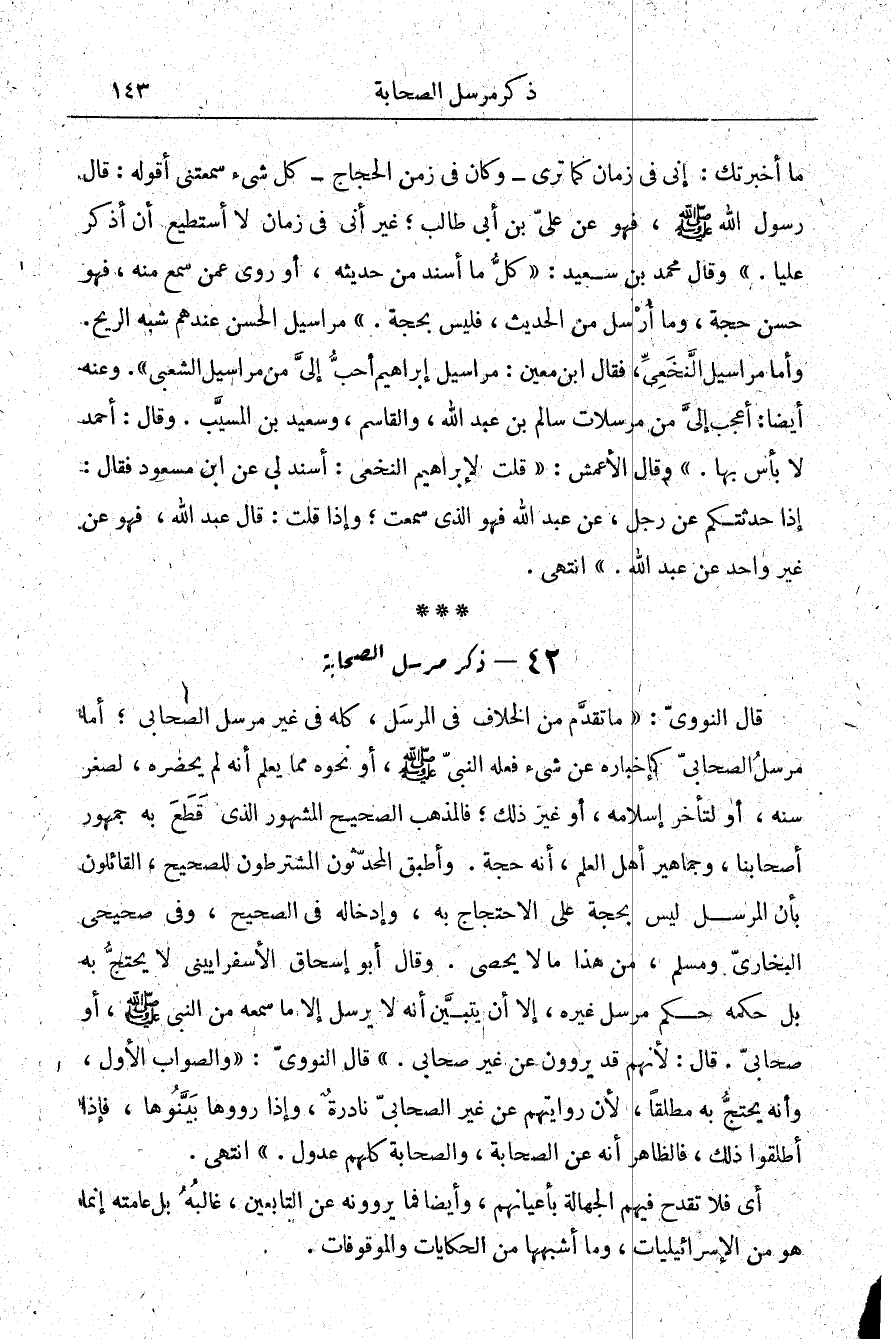 ذكر مرسل الصحابة ١٤٣
ما أخبرتك : إنى فى زمان كما ترى ــ وكان فى زمن الحجاج ــ كل شىء سمعتنى أقوله : قال
رسول الله ﷺ ، فهو عن علىّ بن أبى طالب ؛ غير أنى فى زمان لا أستطيع أن أذكر
عليا . » وقال محمد بن سعيد : « كلُّ ما أسند من حديثه ، أو روى عمن سمع منه ، فهو
حسن حجة ، وما أُرْسل من الحديث ، فليس بحجة . » مراسيل الحسن عندهم شبه الريح.
وأما مراسيل النَّخَعِىِّ، فقال ابن معين : مراسيل إبراهيم أحبُّ إلىَّ من مراسيل الشعبى». وعنه
أيضا: أعجب إلىَّ من مرسلات سالم بن عبد الله ، والقاسم ، وسعيد بن المسيَّب . وقال : أحمد
لا بأس بها . » وقال الأعمش : « قلت لإبراهيم النخعى : أسند لى عن ابن مسعود فقال :
إذا حدثتكم عن رجل ، عن عبد الله فهو الذى سمعت ؛ وإذا قلت : قال عبد الله ، فهو عن
غير واحد عن عبد الله . » انتهى .
***
٤٢ – ذكر مرسل الصحابة
قال النووىّ : « ما تقدَّم من الخلاف فى المرسَل ، كله فى غير مرسل الصحابى ؛ أما
مرسلُ الصحابىّ كإخباره عن شىء فعله النبىّ ﷺ ، أو نحوه مما يعلم أنه لم يحضره ، لصغر
سنه ، أو لتأخر إسلامه ، أو غير ذلك ؛ فالمذهب الصحيح المشهور الذى قَطَعَ به جمهور
أصحابنا ، وجماهير أهل العلم ، أنه حجة . وأطبق المحدّثون المشترطون للصحيح ، القائلون
بأن المرسل ليس بحجة على الاحتجاج به ، وإدخاله فى الصحيح ، وفى صحيحى
البخارىّ ومسلم ، من هذا ما لا يحصى . وقال أبو إسحاق الأسفرايينى لا يحتجُّ به
بل حكمه حكم مرسل غيره ، إلا أن يتبيَّن أنه لا يرسل إلا ما سمعه من النبى ﷺ ، أو
صحابىّ . قال : لأنهم قد يروون عن غير صحابى . » قال النووىّ : «والصواب الأول ،
وأنه يحتجُّ به مطلقاً ، لأن روايتهم عن غير الصحابىّ نادرةٌ ، وإذا رووها بَيَّنُوها ، فإذا
أطلقوا ذلك ، فالظاهر أنه عن الصحابة ، والصحابة كلهم عدول . » انتهى .
أى فلا تقدح فيهم الجهالة بأعيانهم ، وأيضا فما يروونه عن التابعين ، غالبُهُ بل عامته إنما
هو من الإسرائيليات ، وما أشبهها من الحكايات والموقوفات .